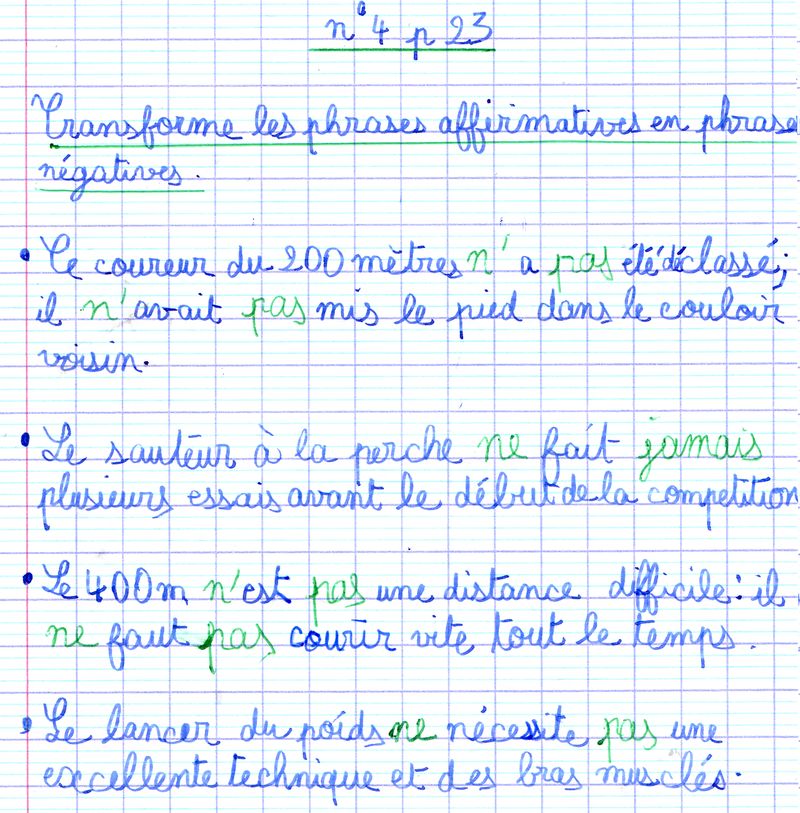 n°4 p 23
Transforme les phrases affirmatives en phrase
négatives.
• Le coureur du 200 mètres n'a pas été déclassé;
il n'avait pas mis le pied dans le couloir
voisin.
• Le sauteur à la perche ne fait jamais
plusieurs essais avant le début de la competition
• Le 400m n'est pas une distance difficile: il
ne faut pas courir vite tout le temps.
• Le lancer du poids ne nécessite pas une
excellente technique et des bras musclés.